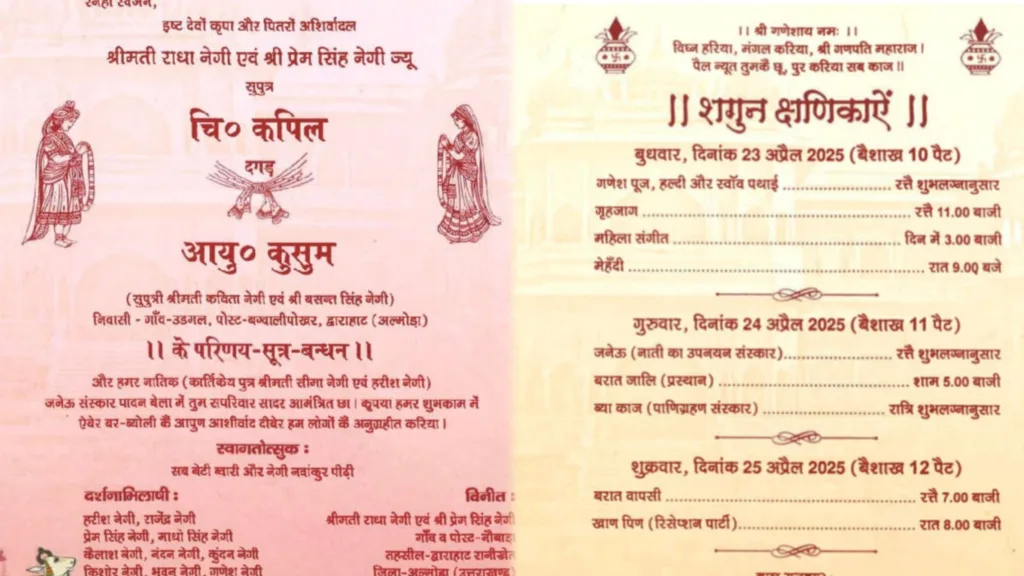 स्नेही स्वजन,
इष्ट देवों कृपा और पितरों अशिर्वादल
श्रीमती राधा नेगी एवं श्री प्रेम सिंह नेगी ज्यू
सुपुत्र
चि० कपिल
दगड़
आयु० कुसुम
(सुपुत्री श्रीमती कविता नेगी एवं श्री बसन्त सिंह नेगी)
निवासी - गाँव-उडगल, पोस्ट-बग्वालीपोखर, द्वाराहाट (अल्मोड़ा)
।। के परिणय-सूत्र-बन्धन ।।
और हमर नातिक (कार्तिकेय पुत्र श्रीमती सीमा नेगी एवं हरीश नेगी)
जनेऊ संस्कार पावन बेला में तुम सपरिवार सादर आमंत्रित छा। कृपया हमर शुभकाम में
ऐबेर बर-ब्योली कैं आपुण आशीर्वाद दीबेर हम लोगों कैं अनुग्रहीत करिया।
स्वागतोत्सुक :
सब बेटी ब्वारी और नेगी नवांकुर पीढ़ी
दर्शनाभिलाषी :
हरीश नेगी, राजेंद्र नेगी
प्रेम सिंह नेगी, माधो सिंह नेगी
कैलाश नेगी, नंदन नेगी, कुंदन नेगी
किशोर नेगी, भुवन नेगी, गणेश नेगी
विनीत :
श्रीमती राधा नेगी एवं श्री प्रेम सिंह नेगी
गाँव व पोस्ट-नौबाड़ा
तहसील-द्वाराहाट रानीखेत
जिला-अल्मोड़ा (उत्तराखण्ड)
।। श्री गणेशाय नमः ।।
विघ्न हरिया, मंगल करिया, श्री गणपति महाराज।
पैल न्यूत तुमकैं छू, पुर करिया सब काज॥
।। शगुन क्षणिकाऐं ।।
बुधवार, दिनांक 23 अप्रैल 2025 (बैशाख 10 पैट)
गणेश पूज, हल्दी और स्वॉव पथाई .......................... रत्तै शुभलग्नानुसार
गृहजाग .......................... रत्तै 11.00 बाजी
महिला संगीत .......................... दिन में 3.00 बाजी
मेहँदी .......................... रात 9.00 बजे
गुरुवार, दिनांक 24 अप्रैल 2025 (बैशाख 11 पैट)
जनेऊ (नाती का उपनयन संस्कार).......................... रत्तै शुभलग्नानुसार
बरात जालि (प्रस्थान) .......................... शाम 5.00 बाजी
ब्या काज (पाणिग्रहण संस्कार) .......................... रात्रि शुभलग्नानुसार
शुक्रवार, दिनांक 25 अप्रैल 2025 (बैशाख 12 पैट)
बरात वापसी .......................... रत्तै 7.00 बाजी
खाण पिण (रिसेप्शन पार्टी).......................... रात 8.00 बाजी